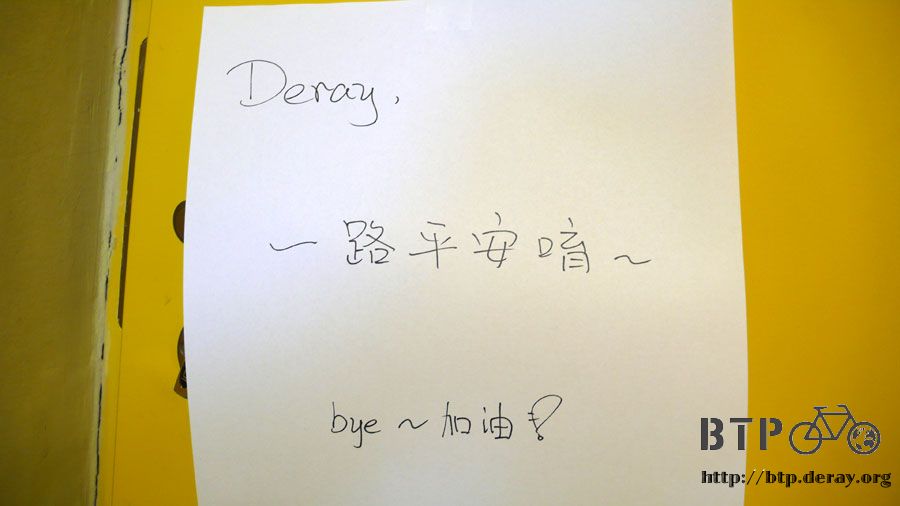 Deray,
一路平安唷~
bye~加油!
BTP
http://btp.deray.org